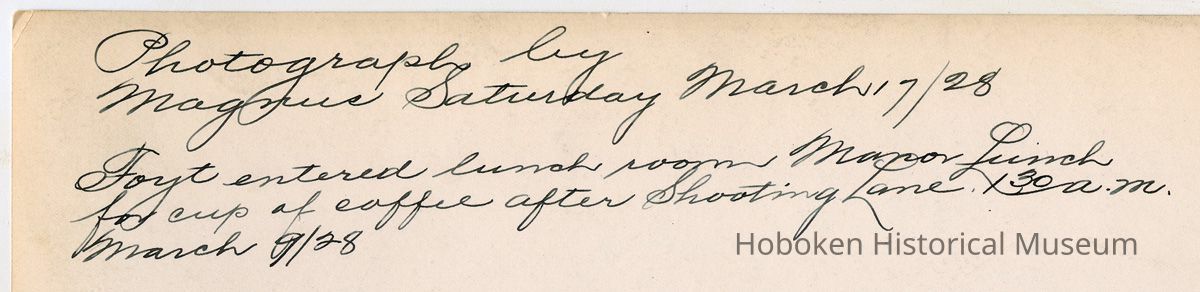 Photograph by
Magnus Saturday March 17/28
Foyt entered lunch room Manor Lunch
for cup of coffee after Shooting Lane. 1 30 a.m.
March 9/28
Hoboken Historical Museum